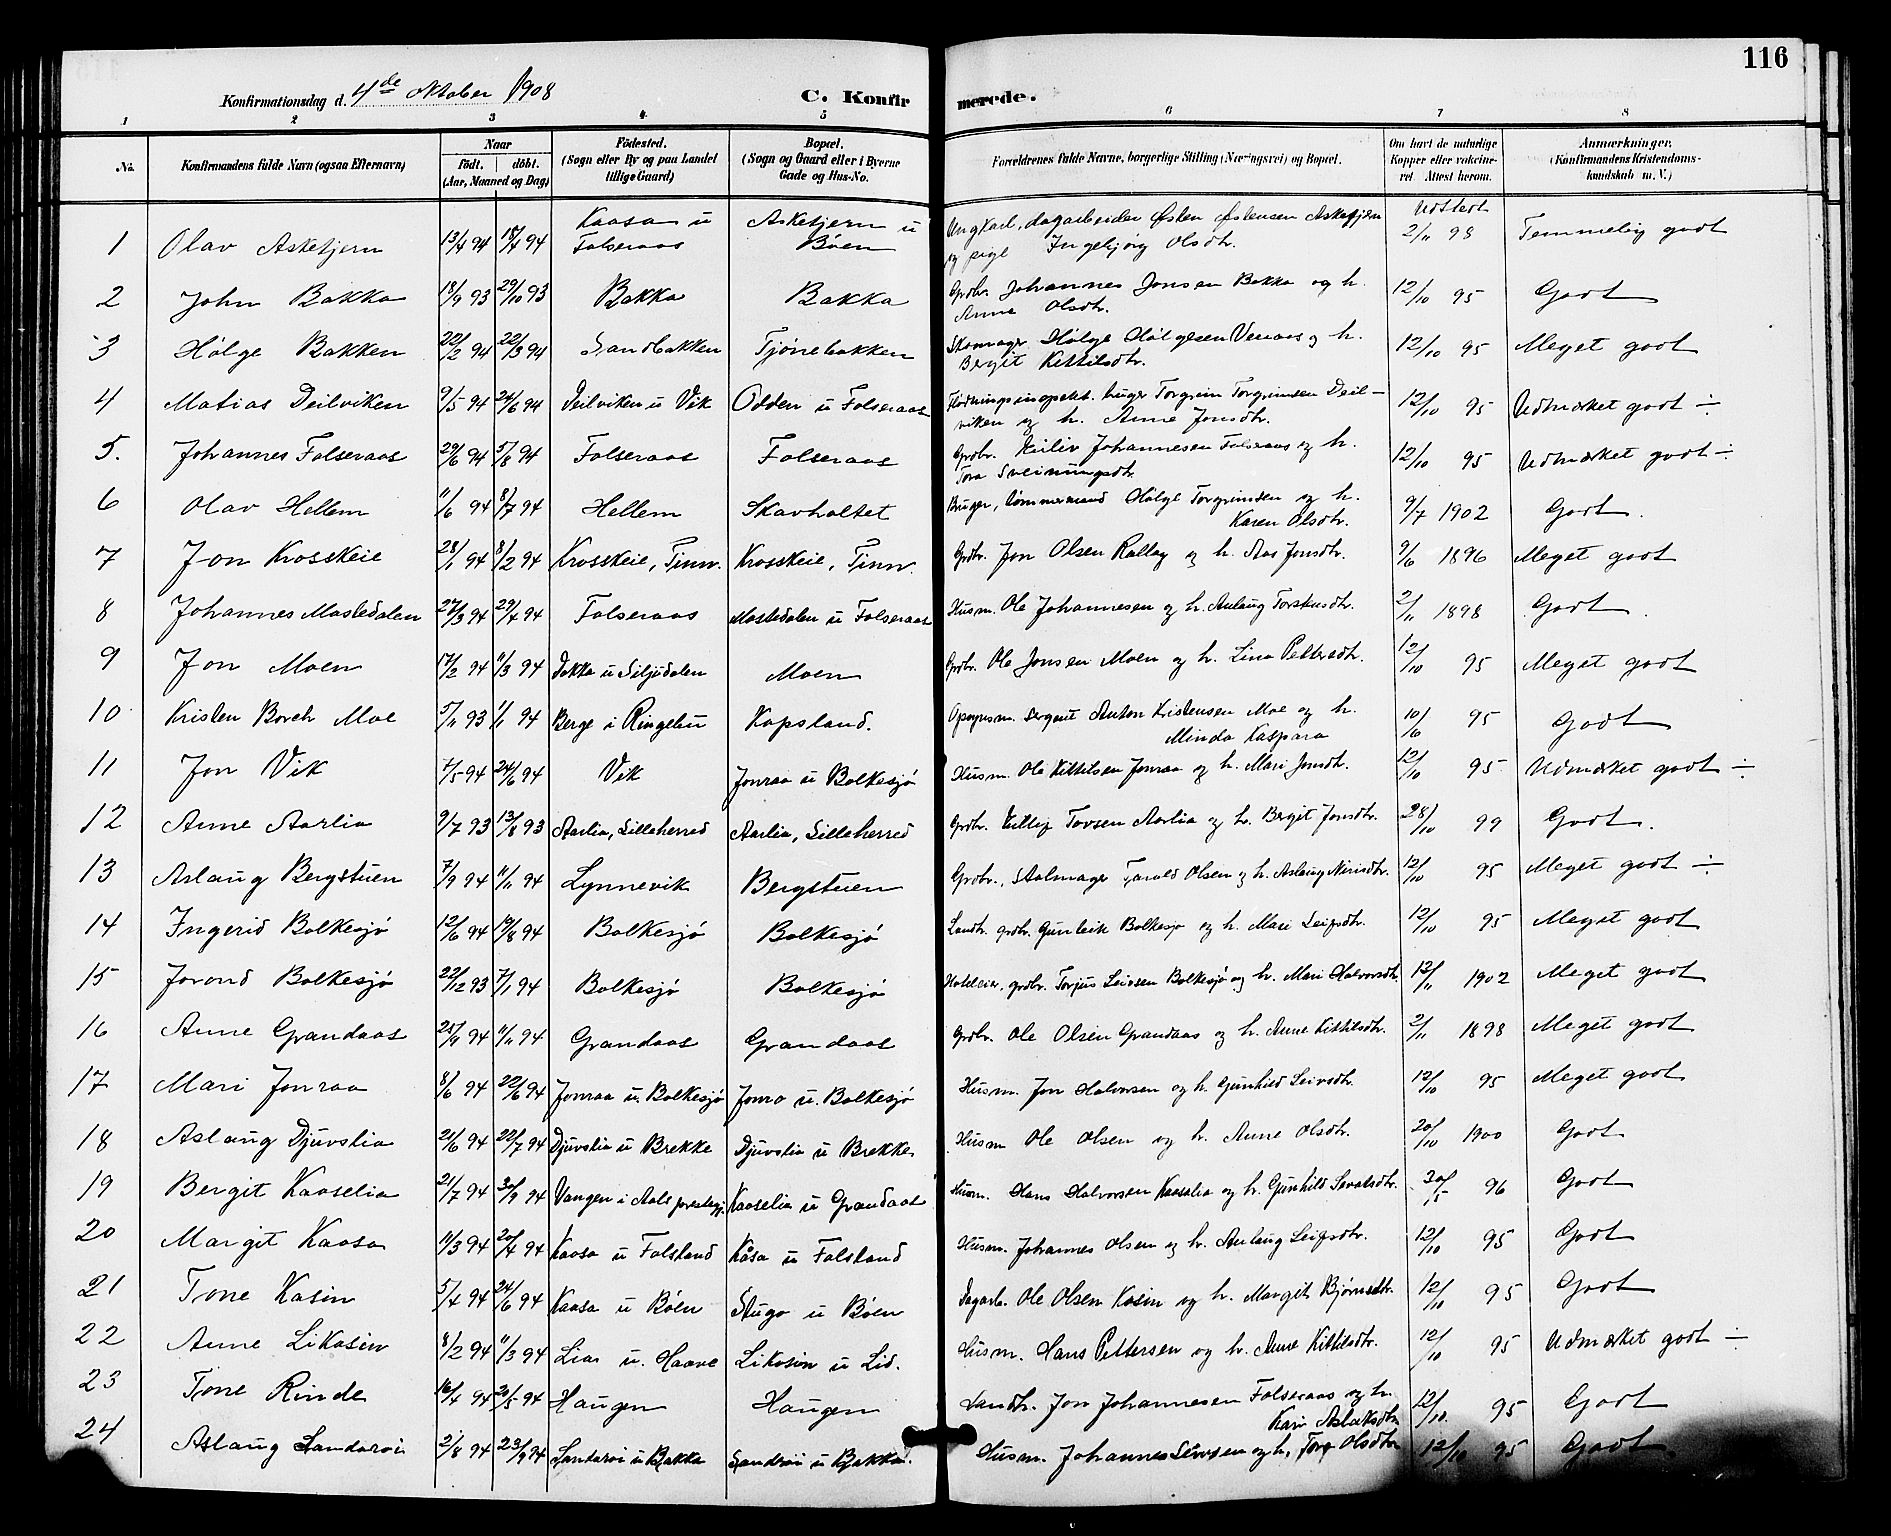 116
Konfirmationsdag d. 4de Oktober 1908 C. Konfirmerede.
1 2 3 4 5 6 7 8
No. Konfirmandens fulde Navn (ogsaa Efternavn) Naar födt. döbt. (Aar, Maaned og Dag) Födested. (Sogn eller By og paa Landet tillige Gaard) Bopæl. (Sogn og Gaard eller i Byerne Gade og Hus-No. Forældrenes fulde Navne, borgerlige Stilling (Næringsvei) og Bopæl. Om havt de naturlige Kopper eller vakcineret. Attest herom. Anmærkninger. (Konfirmandens Kristendomskundskab m. V.)
1 Olav Asketjern 13/4 94 15/4 94 Kaasa u Folseraas Asketjern u Bøen Ungkarl, dagarbeider Østen Østensen Asketjern og pige Ingebjørg Olsdtr. Udstedt 2/11 98 Temmelig godt
2 John Bakka 18/9 93 29/10 93 Bakka Bakka Grdbr. Johannes Jonsen Bakka og h. Anne Olsdtr. 12/10 95 Godt
3 Hølge Bakken 22/2 94 22/3 94 Sandbakken Tjønebakken Skomager Hølge Hølgesen Venaas og h. Bergit Kittilsdtr. 12/10 95 Meget godt
4 Matias Deilviken 9/5 94 24/6 94 Deilviken u Vik Odden u Folseraas Flødningsinspekt. bruger Torgrim Torgrimsen Deilviken og h. Anne Jonsdtr. 12/10 95 Udmærket godt ÷
5. Johannes Folseraas 29/6 94 5/8 94 Folseraas Folseraas Grdbr. Eiliv Johannesen Folseraas og h. Tora Sveinungsdtr. 12/10 95 Udmærket godt ÷
6 Olav Hellem 11/6 94 8/7 94 Hellem Skavholtet Bruger, tømmermand Hølge Torgrimsen og h. Karen Olsdtr. 9/7 1902 Godt.
7 Jon Krosskeie 28/1 94 8/2 94 Krosskeie, Tinn. Krosskeie, Tinn. Grdbr. Jon Olsen Rollag og h. Aas Jonsdtr. 9/6 1896 Meget godt
8 Johannes Mastedalen 27/3 94 29/4 94 Folseraas Mastedalen u Folseraas Husm. Ole Johannesen og h. Anlaug Torstensdtr. 2/11 1898 Godt.
9 Jon Moen 17/2 94 11/3 94 Dokka u Siljudalen Moen Grdbr. Ole Jonsen Moen og h. Lina Pettersdtr. 12/10 95 Meget godt
10 Kristen Borch Moe 5/11 93 1/1 94 Berge i Ringebu Kopsland. Opsynsm. sergent Anton Kristensen Moe og h. Minda Kaspara 10/6 95 Godt
11 Jon Vik 7/5 94 24/6 94 Vik Jonraa u Bolkesjø Husm. Ole Kittilsen Jonraa og h. Mari Jonsdtr. 12/10 95 Udmærket godt ÷
12 Anne Aarlia 9/7 93 13/8 93 Aarlia, Lilleherred Aarlia, Lilleherred Grdbr. Tovsen Aarlia og h. Bergit Jonsdtr. 28/10 99 Godt.
13 Aslaug Bergstuen 7/9 94 11/11 94 Lynnevik Bergstuen Grdbr., Salmager Tarald Olsen og h. Aslaug Nirisdtr. 12/10 95 Meget godt ÷
14 Ingerid Bolkesjø 12/6 94 19/8 94 Bolkesjø Bolkesjø Landh. grdbr. Gunleik Bolkesjø og h. Mari Leifsdtr. 12/10 95 Meget godt
15 Jorond Bolkesjø 22/12 93 7/1 94 Bolkesjø Bolkesjø Hoteleier, grdbr. Torjus Leivsen Bolkesjø og h. Mari Halvorsdtr. 12/11 1902 Meget godt
16 Anne Grandaas 25/9 94 11/11 94 Grandaas Grandaas Grdbr. Ole Olsen Grandaas og h. Anne Kittilsdtr. 2/11 1898 Meget godt
17 Mari Jonraa 8/6 94 22/6 94 Jonraa u. Bolkesjø Jonro u. Bolkesjø Husm. Jon Halvorsen og h. Gunhild Leivsdtr. 12/10 95 Meget godt
18 Aslaug Djuvslia 21/6 94 22/7 94 Djuvslia u Brekke Djuvslia u Brekke Husm Ole Olsen og h. Anne Olsdtr. 20/10 1900 Godt
19 Bergit Kaaselia 21/7 94 30/9 94 Vangen i Aals prestegj. Kaaselia u Grandaas Husm. Hans Halvorsen Kaaselia og h. Gunhild 30/5 96 Godt
20 Margit Kaasa 11/3 94 20/4 94 Kaasa u Folsland Kåsa u Folsland Husm. Johannes Olsen og h. Anlaug Leifsdtr. 12/10 95 Godt
21 Tone Kasin 5/4 94 24/6 94 Kaasa u Bøen Stugo u Bøen Dagarb. Ole Olsen Kasin og h. Margit Bjørnsdtr. 12/10 95 Godt
22 Anne Likasin 8/2 94 11/3 94 Lia u. Haave Likasin u Lid. Husm. Hans Pettersen og h. Anne Kittilsdtr. 12/10 95 Udmærket godt ÷
23 Tone Rinde 16/4 94 20/5 94 Haugen Haugen Landh. Jon Johannesen Folseraas og h. Kari Aslaksdtr. 12/10. 95 Godt
24 Aslaug Landaroi 2/8 94 23/9 94 Landaroi u Bakka Sandroi u Bakka. Husm. Johannes Leivsen og h. Tore Olsdtr 12/10 95 Godt.